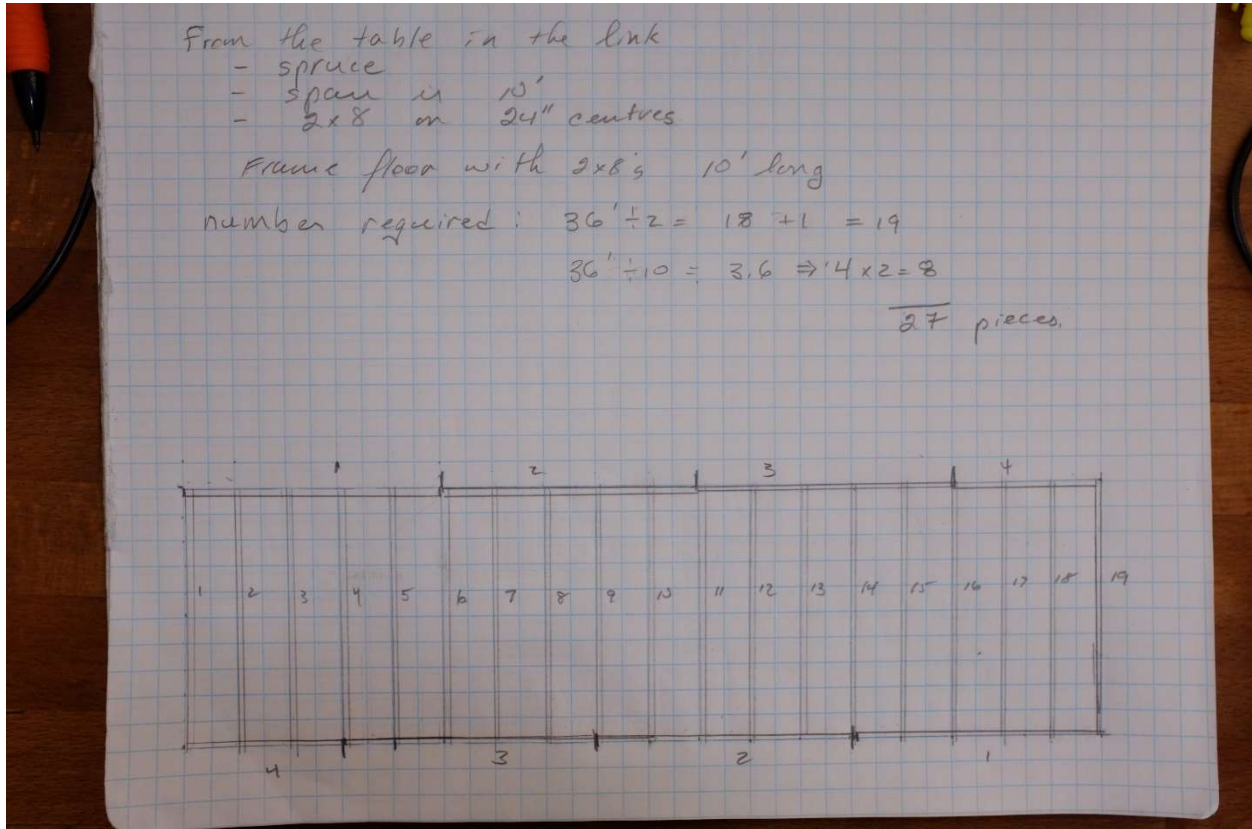 From the table in the link
- spruce
- span is 10'
- 2x8 on 24" centres
Frame floor with 2x8's 10' long
number required: 36' ÷ 2 = 18 + 1 = 19
36' ÷ 10 = 3.6 ⇒ 4 x 2 = 8
27 pieces.
1 2 3 4
1 2 3 4 5 6 7 8 9 10 11 12 13 14 15 16 17 18 19
4 3 2 1